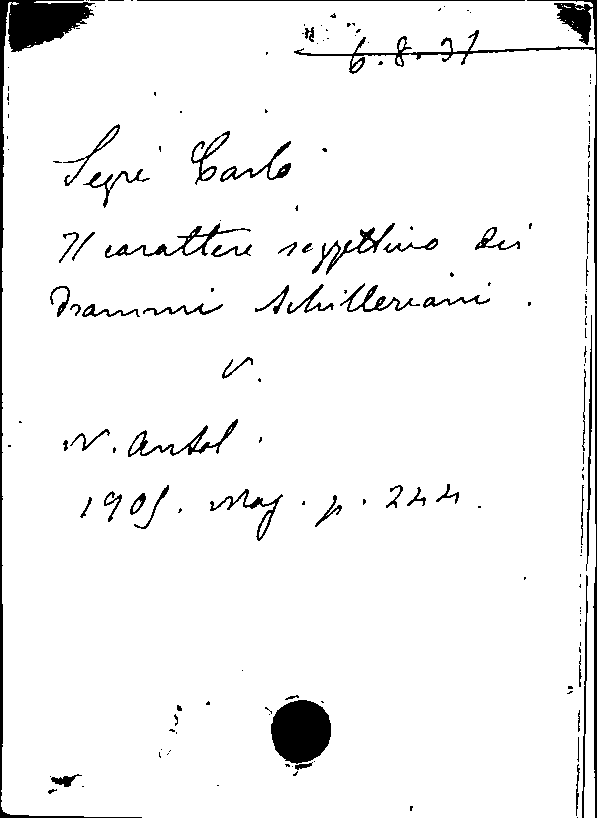 6.8.31
Segrè Carlo
Il carattere soggettivo dei
Drammi Schilleriani.
v.
N. Antol.
1905. Mag. p. 244.